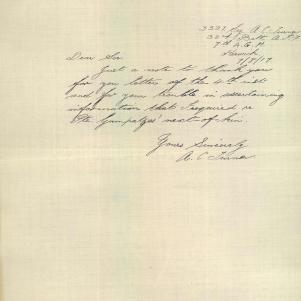 3327 Pte A. C. Turner
32nd Batt A.I.F.
7th A.G.H.
Keswick
7/9/17
Dear Sir
Just a note to thank you
for your letter of the 4th inst
and for your trouble in ascertaining
information that I required re
Pte Gumpatzes' next-of-kin.
Yours Sincerely
A. C Turner